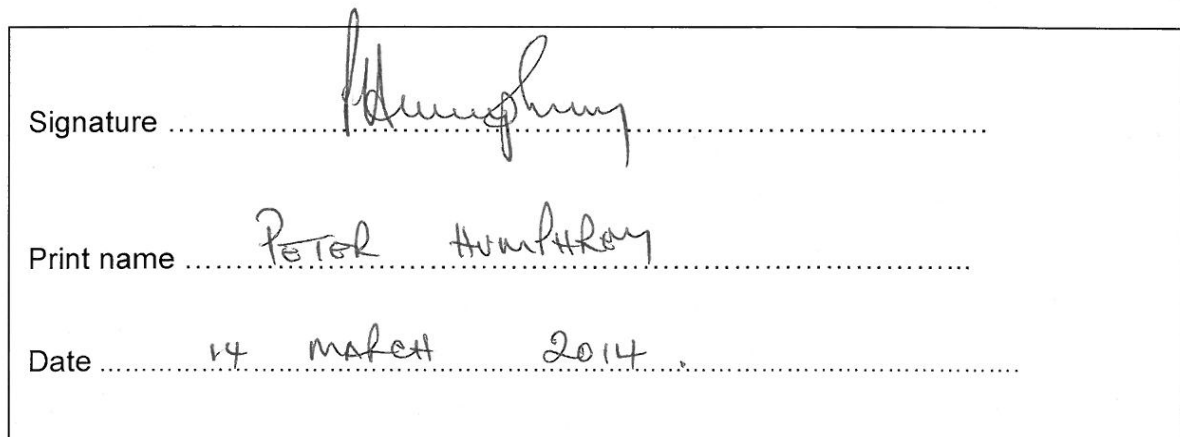 Signature ........ PHumphrey ........
Print name ........ PETER HUMPHREY ........
Date ........ 14 MARCH 2014. ........